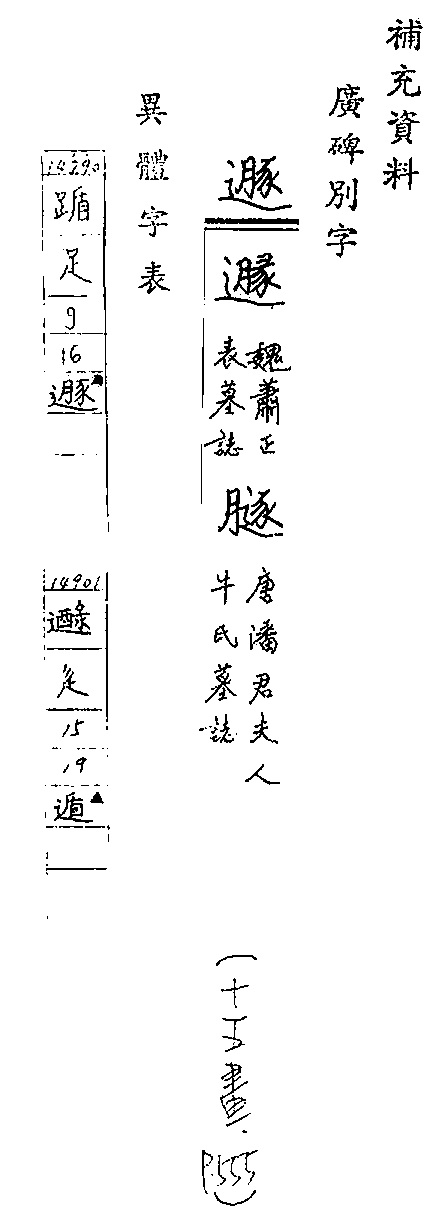 補充資料
廣碑別字
遯
遯 魏蕭正表墓誌
唐潘君夫人牛氏墓誌
(十五畫.P.555)
異體字表
14390
踲
足
9
16
遯
14901
辵
15
19
遁